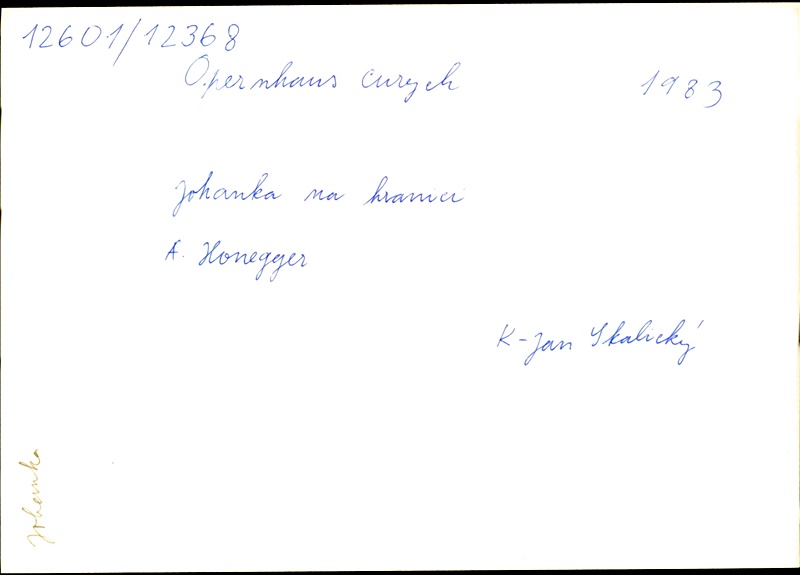 12601/12368
Opernhaus Curych 1983
Johanka na hranici
A. Honegger
K-Jan Skalický
Johanka